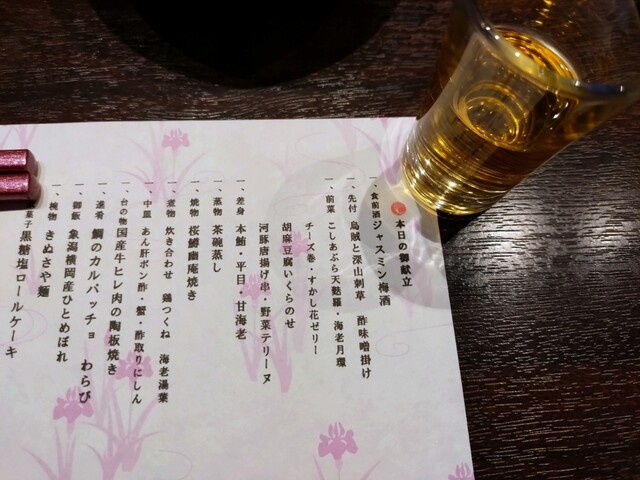 本日の御献立
一、食前酒 ジャスミン梅酒
一、先付 烏賊と深山刺草 酢味噌掛け
一、前菜 こしあぶら天麩羅・海老月環
チーズ巻・すかし花ゼリー
胡麻豆腐いくらのせ
河豚唐揚げ串・野菜テリーヌ
一、差身 本鮪・平目・甘海老
一、蒸物 茶碗蒸し
一、焼物 桜鱒幽庵焼き
一、煮物 炊き合わせ 鶏つくね 海老湯葉
一、中皿 あん肝ポン酢・蟹・酢取りにしん
一、台の物 国産牛ヒレ肉の陶板焼き
一、進肴 鯛のカルパッチョ わらび
一、御飯 象潟横岡産ひとめぼれ
一、椀物 きぬさや麺
菓子 黒糖塩ロールケーキ